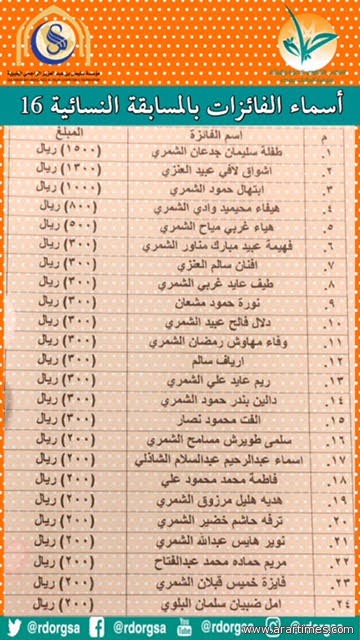 مؤسسة سليمان بن عبد العزيز الراجحي الخيرية
أسماء الفائزات بالمسابقة النسائية 16
م اسم الفائزة المبلغ
١. طفلة سليمان جدعان الشمري (١٥٠٠) ريال
٢. اشواق لافي عبيد العنزي (١٣٠٠) ريال
٣. ابتهال حمود الشمري (١٠٠٠) ريال
٤. هيفاء محيميد وادي الشمري (٨٠٠) ريال
٥. هياء غربي مياح الشمري (٥٠٠) ريال
٦. فهيمة عبيد مبارك مناور الشمري (٣٠٠) ريال
٧. افنان سالم العنزي (٣٠٠) ريال
٨. طيف عايد غربي الشمري (٣٠٠) ريال
٩. نورة حمود مشعان (٣٠٠) ريال
١٠. دلال فالح عبيد الشمري (٣٠٠) ريال
١١. وفاء مهاوش رمضان الشمري (٣٠٠) ريال
١٢. ارياف سالم (٣٠٠) ريال
١٣. ريم عايد علي الشمري (٣٠٠) ريال
١٤. دالين بندر حمود الشمري (٣٠٠) ريال
١٥. الفت محمود نصار (٣٠٠) ريال
١٦. سلمى طويرش مسامح الشمري (٢٠٠) ريال
١٧. اسماء عبدالرحيم عبدالسلام الشاذلي (٢٠٠) ريال
١٨. فاطمة محمد محمود علي (٢٠٠) ريال
١٩. هديه هليل مرزوق الشمري (٢٠٠) ريال
٢٠. ترفه حاشم خضير الشمري (٢٠٠) ريال
٢١. نوير هايس عبدالله الشمري (٢٠٠) ريال
٢٢. مريم حماده محمد عبدالفتاح (٢٠٠) ريال
٢٣. فايزة خميس قبلان الشمري (٢٠٠) ريال
٢٤. امل ضبيان سلمان البلوي (٢٠٠) ريال
@rdorgsa @rdorgsa @rdorgsa
www.arartimes.com